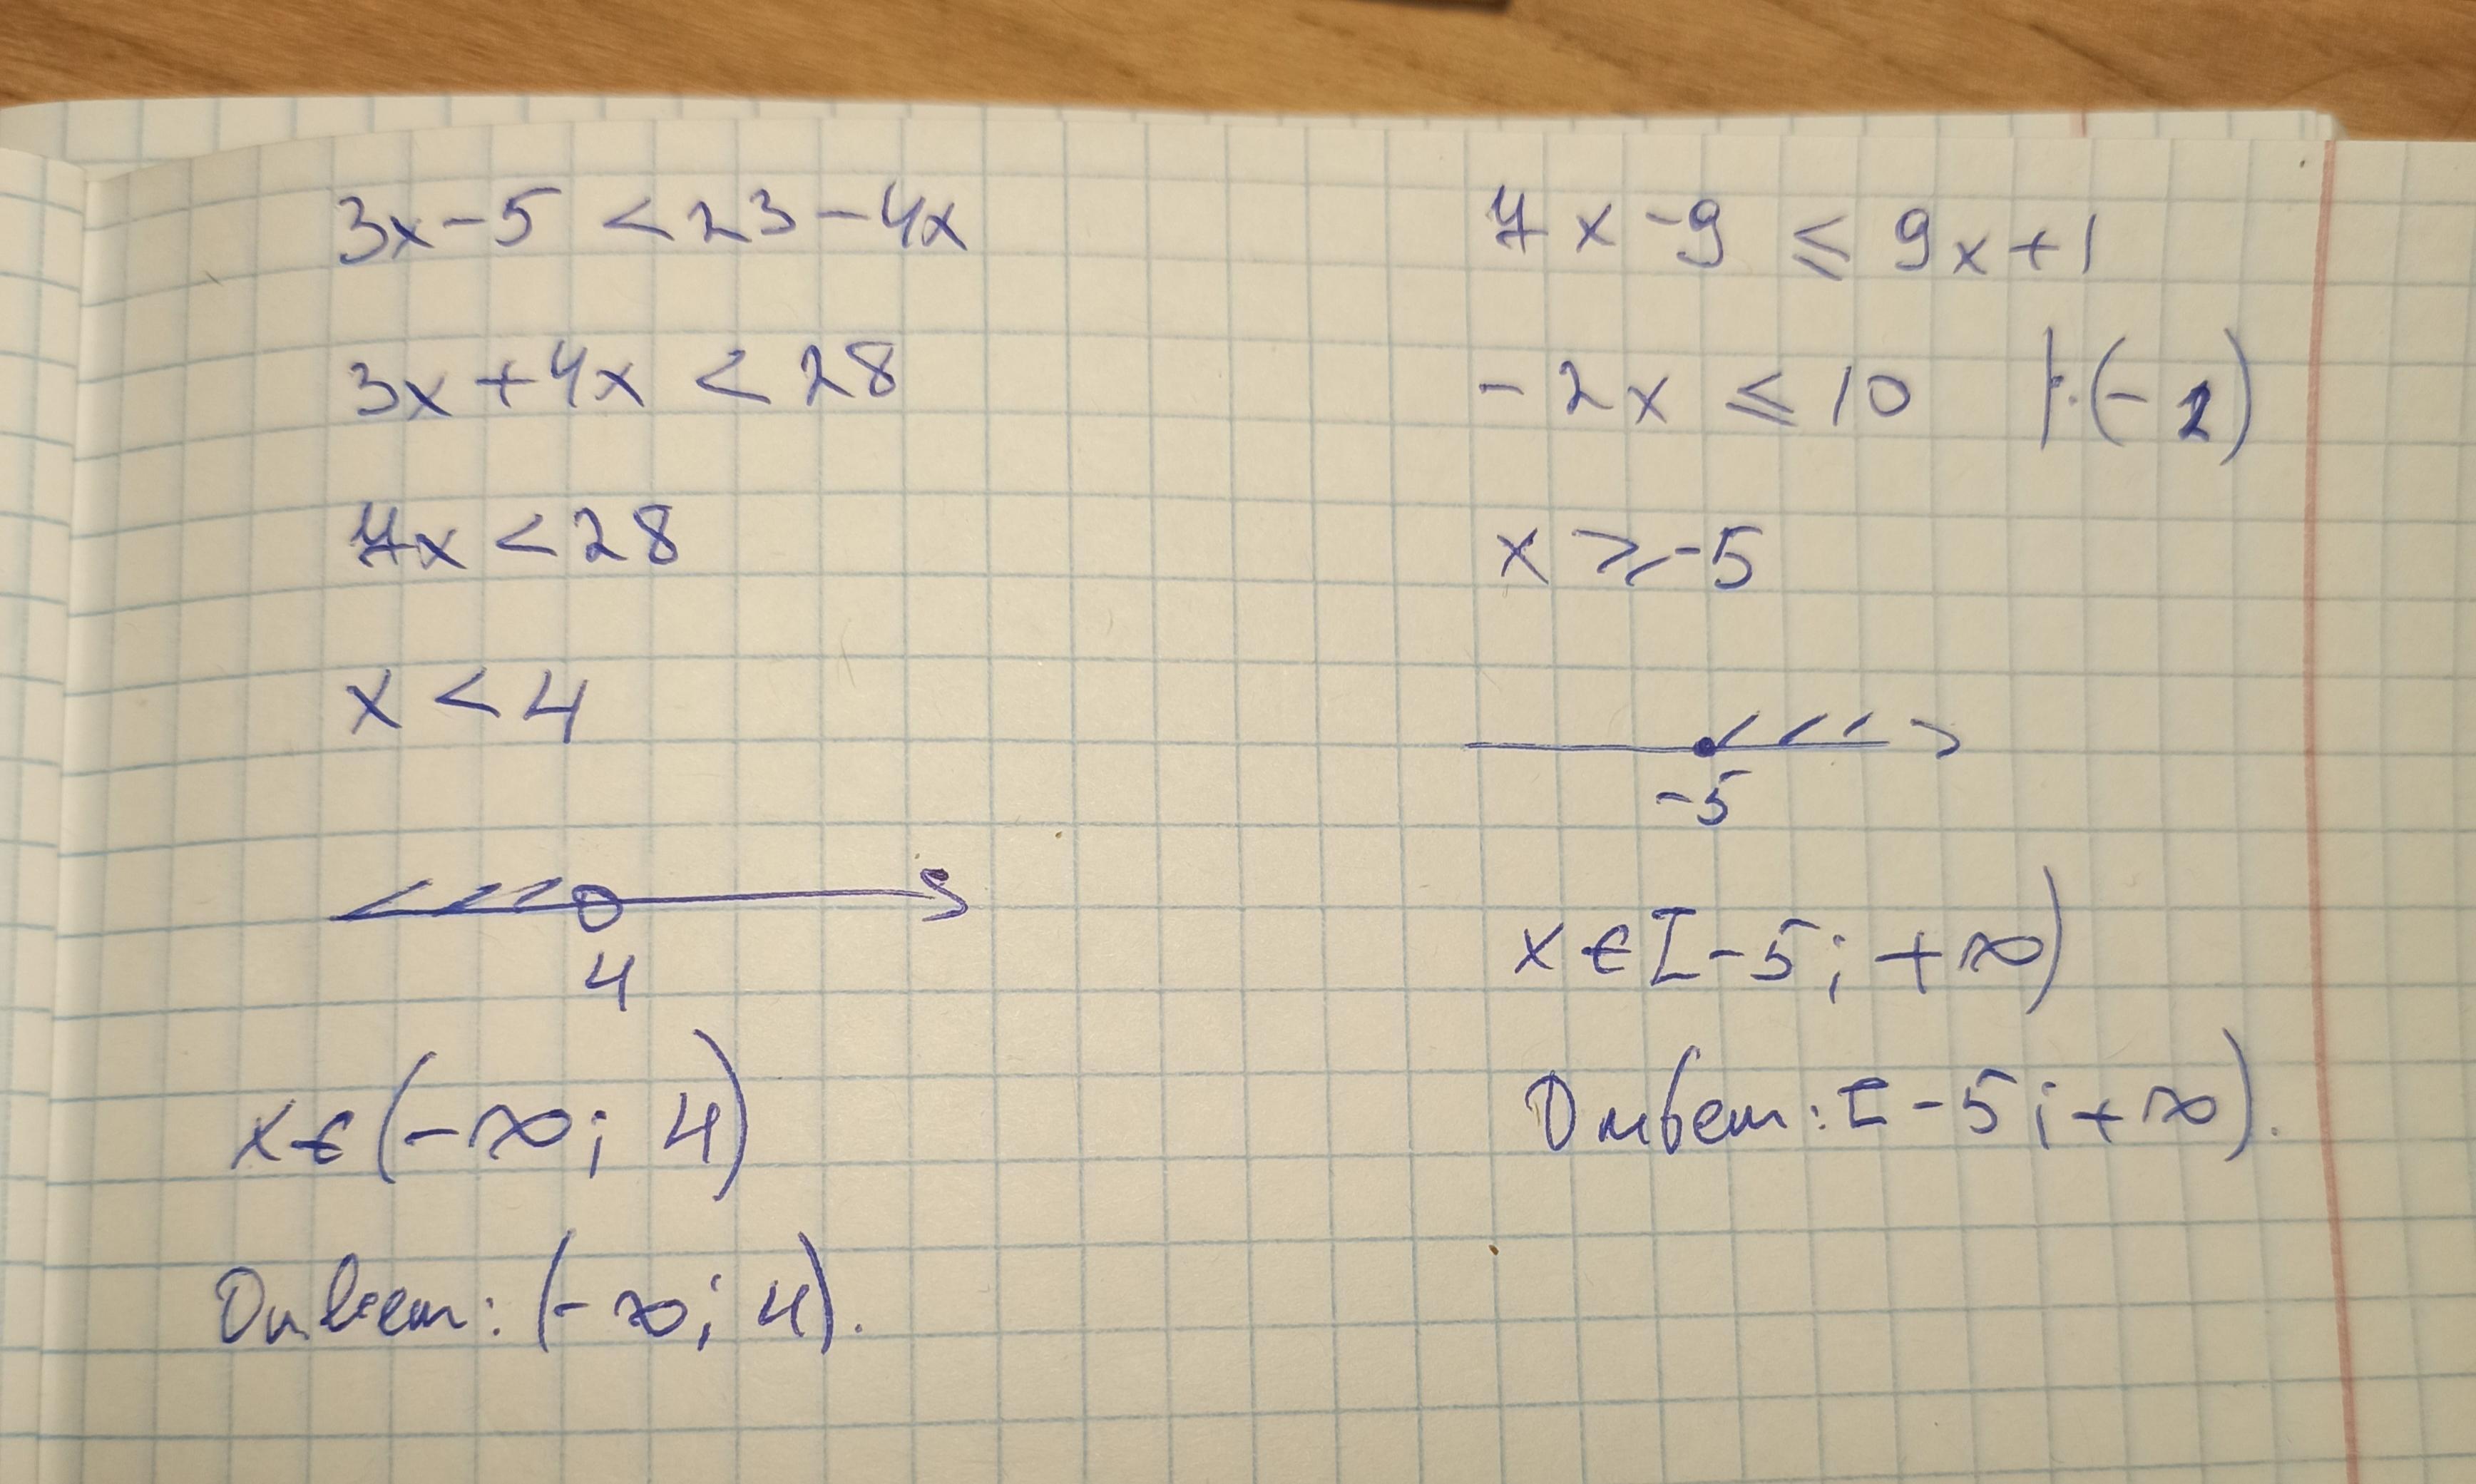 3x-5 < 23-4x
3x+4x < 28
7x < 28
x < 4
4
x∈(-∞; 4)
Ответ: (-∞; 4).
7x-9 ≤ 9x+1
-2x ≤ 10 |:(-2)
x ≥ -5
-5
x∈[-5; +∞)
Ответ: [-5; +∞).